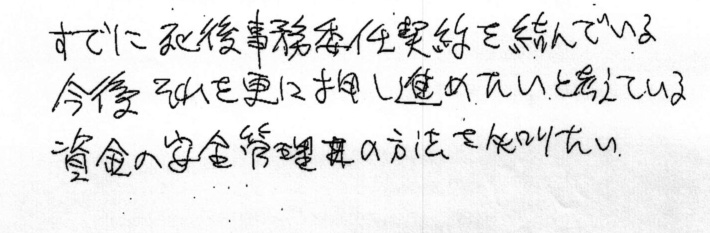 すでに死後事務委任契約を結んでいる
今後それを更に押し進めたいと考えている
資金の安全管理の方法を知りたい